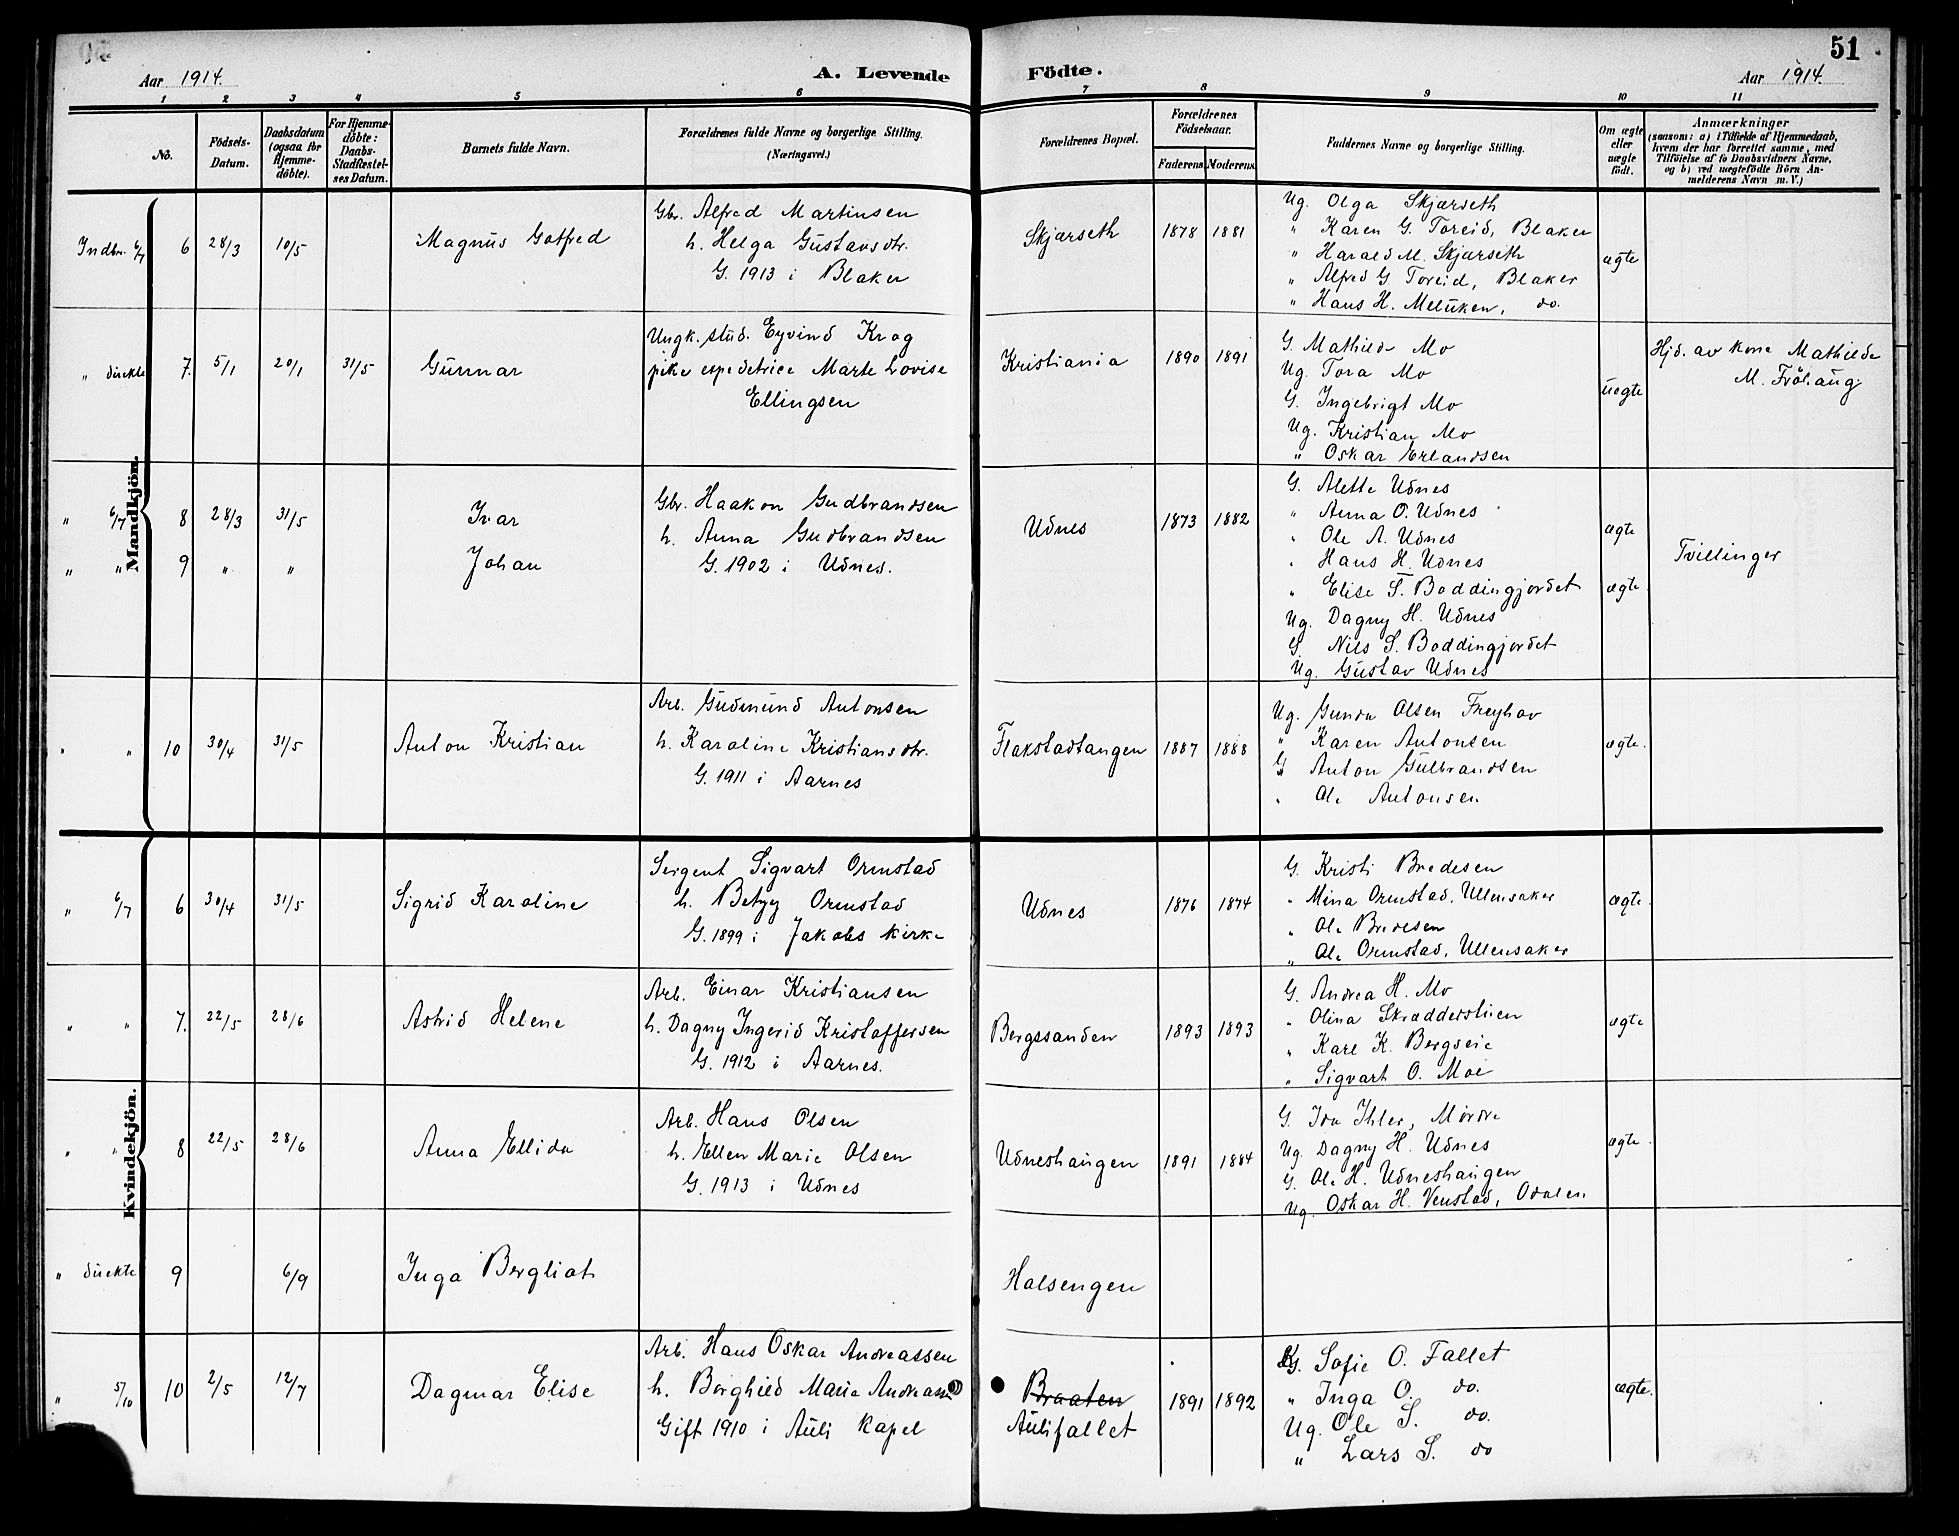 Aar 1914.
A. Levende Födte.
51
Aar 1914.
1 2 3 4 5 6 7 8 9 10 11
No.
Födsels-Datum.
Daabsdatum (ogsaa for Hjemme-döbte).
For Hjemme-döbte: Daabs-Stadfæstel-ses Datum.
Barnets fulde Navn.
Forældrenes fulde Navne og borgerlige Stilling.
(Næringsvei.)
Forældrenes Bopæl.
Forældrenes Födselsaar.
Faderens Moderens
Faddernes Navne og borgerlige Stilling.
Om ægte eller uægte födt.
Anmærkninger
(saasom: a) i Tilfælde af Hjemmedaab,
hvem der har forrettet samme, med
Tilföielse af to Daabsvidners Navne,
og b) ved uægtefödte Börn An-
melderens Navn m. V.)
Mandkjön.
Indbr. 6/7 6 28/3 10/5 Magnus Gotfred
Gbr. Alfred Martinsen
h. Helga Gustavsdtr.
G. 1913 i Blaker
Skjærseth 1878 1881
Ug. Olga Skjærseth
" Karen G. Toreid, Blaker
" Harald M. Skjærseth
" Alfred G Toreid, Blaker
" Hans H. Melnken, do.
ægte
" direkte 7. 5/1 20/1 31/5 Gunnar
Ungk. stud. Eyvind Krog
pike expeditrice Marte Lovise
Ellingsen
Kristiania 1890 1891
G. Mathilde Mo
Ug. Tora Mo
G. Ingebrigt Mo
Ug. Kristian Mo
" Oskar Erlandsen
uægte
Hjd. av kone Mathilde
M. Fröhaug
" 6/7 8 28/3 31/5 Ivar
" " 9 " " Johan
Gbr. Haakon Gudbrandsen
h. Anna Gudbrandsen
G. 1902 i Udnes.
Udnes 1873 1882
G. Alette Udnes
" Anna O. Udnes
" Ole A. Udnes
" Hans H. Udnes
" Elise S. Boddingjordet
Ug. Dagny H. Udnes
G Nils S. Boddingjordet
Ug. Gustav Udnes
ægte
ægte
Tvillinger
" " 10 30/4 31/5 Anton Kristian
Arb. Gudmund Antonsen
h. Karoline Kristiansdtr.
G. 1911 i Aarnes
Flakstadtangen 1887 1888
Ug. Gunda Olsen Freyhov
" Karen Antonsen
G Anton Gulbrandsen
" Ole Antonsen
ægte.
Kvindekjön.
" 6/7 6 30/4 31/5 Sigrid Karoline
Sergent Sigvart Ormstad
h. Betzy Ormstad
G. 1899 i Jakobs kirke
Udnes 1876 1874
G. Kristi Bredesen
" Mina Ormstad, Ullensaker
" Ole Bredesen
" Ole Ormstad, Ullensaker
ægte.
" " 7. 22/5 28/6 Astrid Helene
Arb. Einar Kristiansen
h. Dagny Ingerid Kristoffersen
G. 1912 i Aarnes.
Bergssanden 1893 1893
G. Andrea H. Mo
" Olina Skrædderstuen
" Karl K. Bergseie
" Sigvart O. Moe
ægte
" " 8 22/5 28/6 Anna Ellida
Arb. Hans Olsen
h. Ellen Marie Olsen
G. 1913 i Udnes
Udneshaugen 1891 1884
G. Ida Ihler, Mordre
Ug. Dagny H. Udnes
G. Ole H. Udneshaugen
Ug. Oskar H. Venstad, Odalen
ægte.
" direkte 9 6/9 Inga Bergliot
Halsengen
" 5/10 10 2/5 12/7 Dagmar Elise
Arb. Hans Oskar Andreassen
h. Borghild Marie Andreass
Gift 1910 i Auli kapel
Braaten
Aulifallet 1891 1892
G. Sofie O. Fallet
" Inga O. do.
Ug. Ole S. do.
" Lars S. do
ægte.